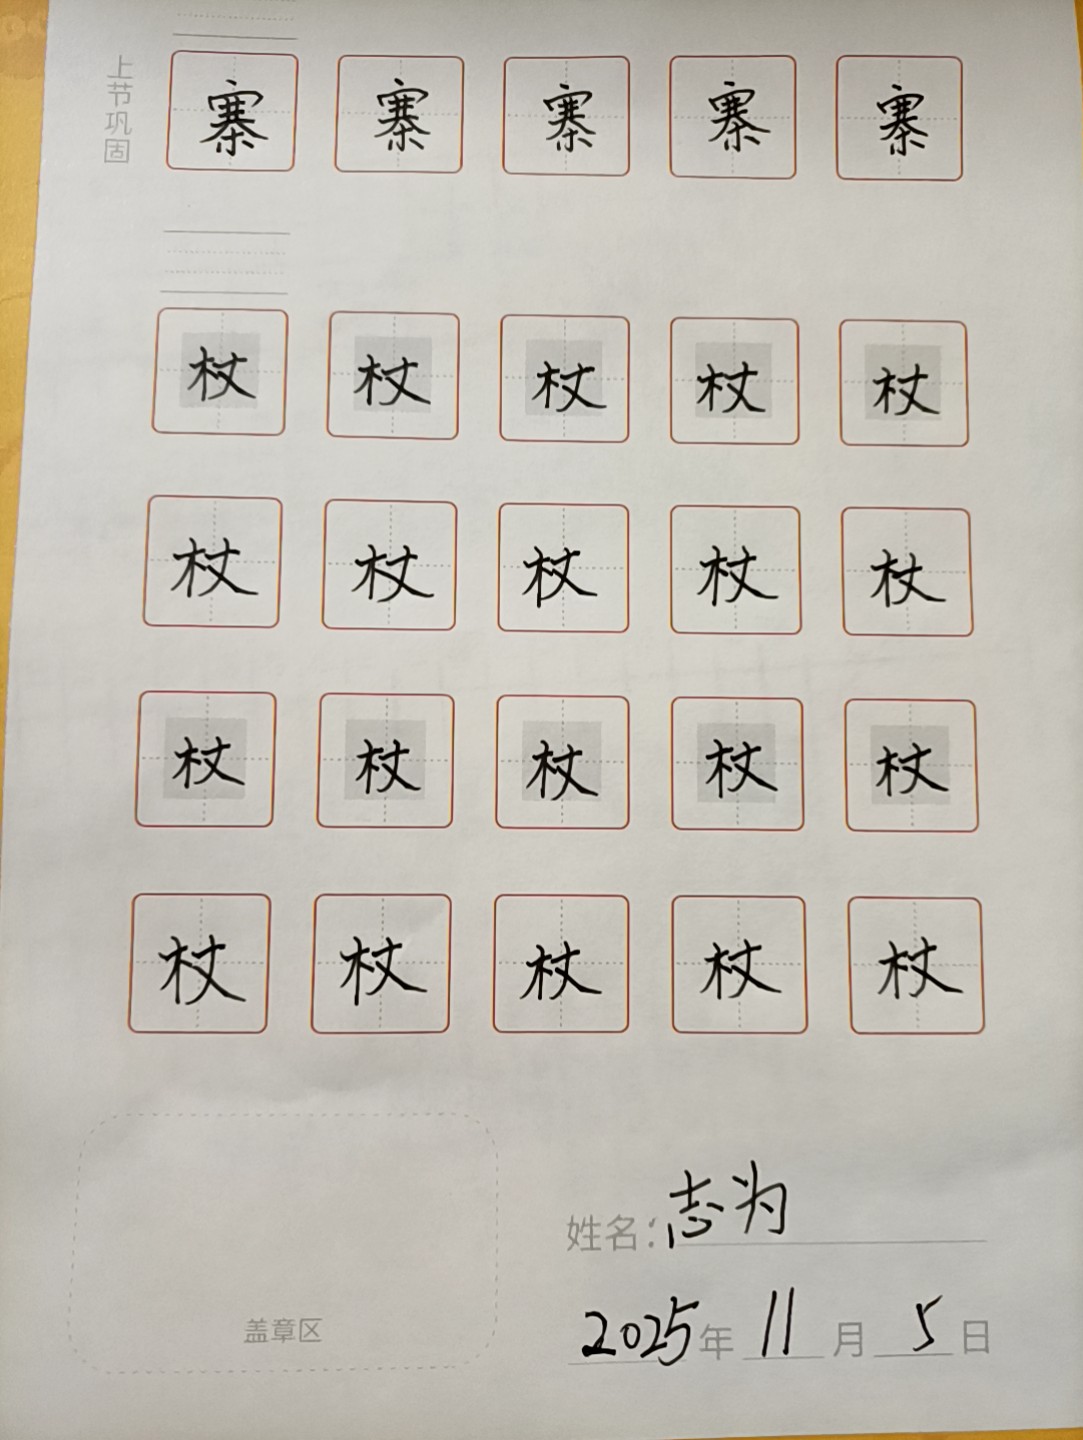 上节巩固
寨 寨 寨 寨 寨
杖 杖 杖 杖 杖
杖 杖 杖 杖 杖
杖 杖 杖 杖 杖
杖 杖 杖 杖 杖
姓名：志为
盖章区
2025年 11月 5日